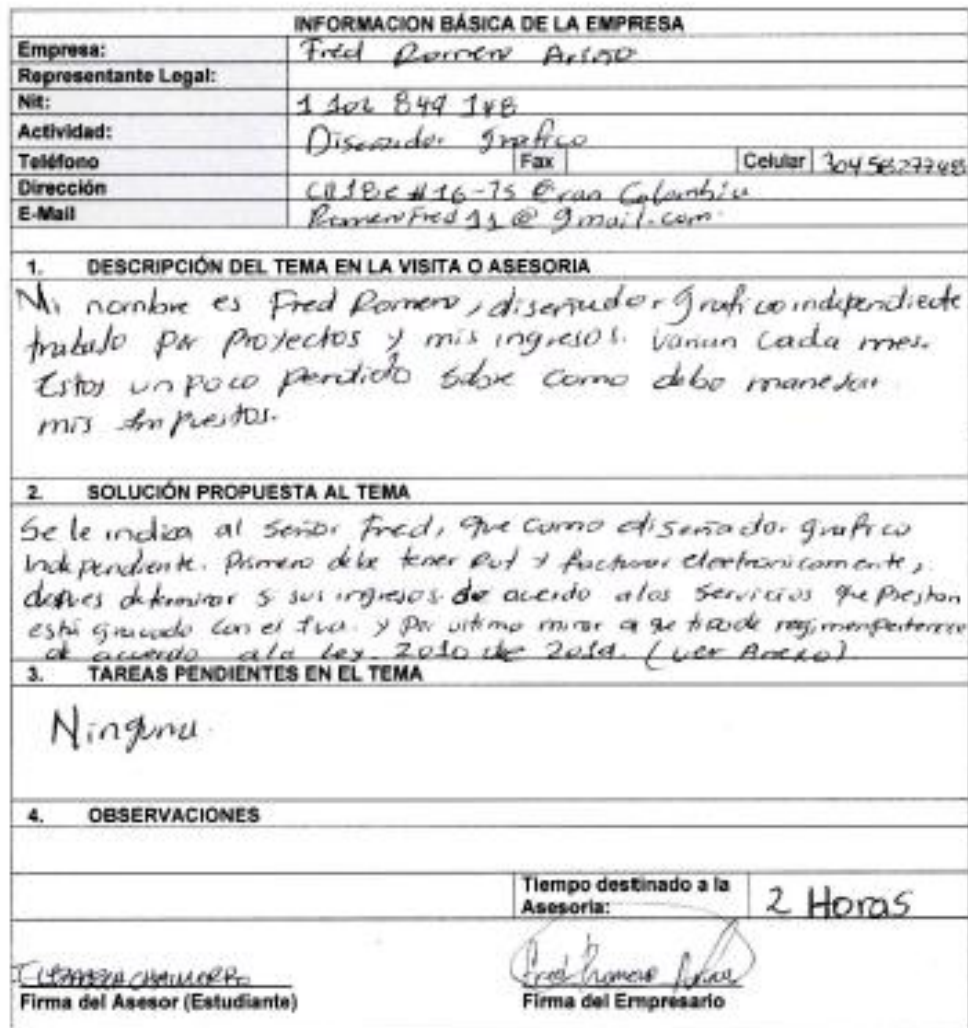 INFORMACION BÁSICA DE LA EMPRESA
Empresa: Fred Romero
Representante Legal:
Nit: 1 102 849 148
Actividad: Diseñador grafico
Teléfono Fax Celular
Dirección #16-75 Gran Colombia
E-Mail RomeroFred11@gmail.com.
1. DESCRIPCIÓN DEL TEMA EN LA VISITA O ASESORIA
Mi nombre es Fred Romero, diseñador grafico independiente
trabajo por proyectos y mis ingresos. varian cada mes.
Estoy un poco perdido sobre como debo manejar
mis impuestos.
2. SOLUCIÓN PROPUESTA AL TEMA
Se le indica al señor Fred, que como diseñador grafico
independiente. Primero debe tener Rut y facturar electronicamente,
despues determinar si sus ingresos de acuerdo a los servicios que prestan
está gravado con el Iva. y por ultimo mirar a que tipo de regimen pertenece
de acuerdo a la ley. 2010 de 2019. (ver Anexo)
3. TAREAS PENDIENTES EN EL TEMA
Ninguna.
4. OBSERVACIONES
Tiempo destinado a la
Asesoria: 2 Horas
Fred Romero
Firma del Asesor (Estudiante) Firma del Empresario